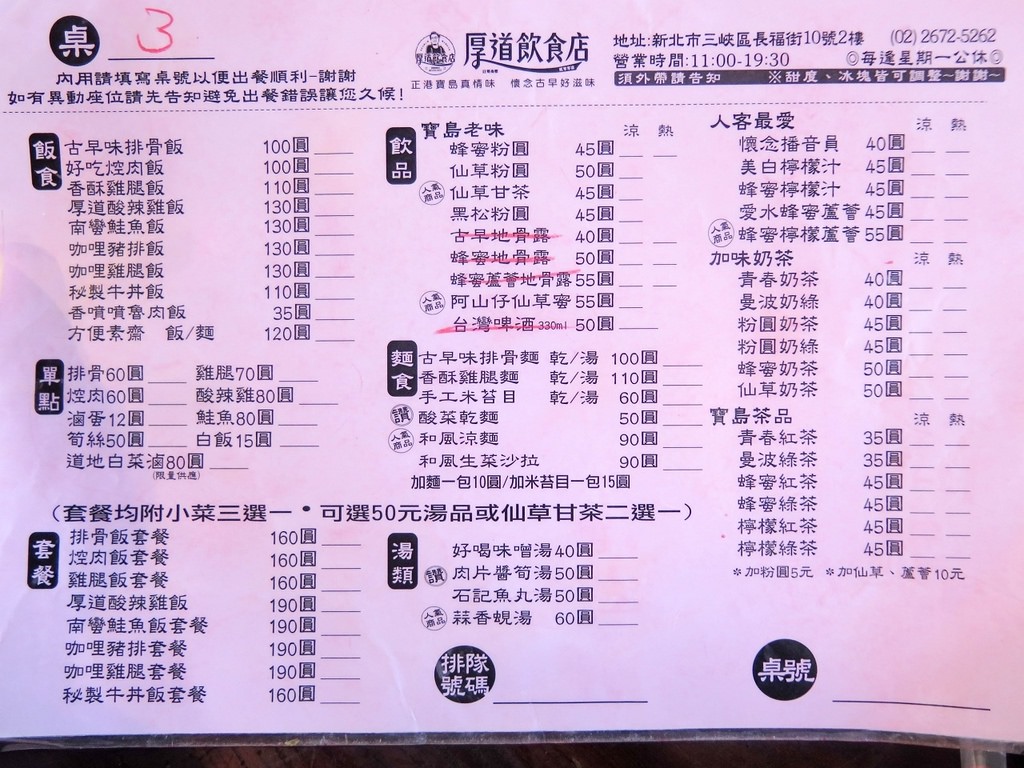 桌 3
內用請填寫桌號以便出餐順利-謝謝
如有異動座位請先告知避免出餐錯誤讓您久候!
厚道飲食店
正港寶島真情味 懷念古早好滋味
地址:新北市三峽區長福街10號2樓 (02) 2672-5262
營業時間:11:00-19:30 ◎每逢星期一公休◎
須外帶請告知 ※甜度、冰塊皆可調整~謝謝~
飯食
古早味排骨飯 100圓
好吃焢肉飯 100圓
香酥雞腿飯 110圓
厚道酸辣雞飯 130圓
南蠻鮭魚飯 130圓
咖哩豬排飯 130圓
咖哩雞腿飯 130圓
秘製牛丼飯 110圓
香噴噴魯肉飯 35圓
方便素齋 飯/麵 120圓
單點
排骨60圓 雞腿70圓
焢肉60圓 酸辣雞80圓
滷蛋12圓 鮭魚80圓
筍絲50圓 白飯15圓
道地白菜滷80圓
(限量供應)
飲品
寶島老味 涼 熱
蜂蜜粉圓 45圓
仙草粉圓 50圓
人氣商品 仙草甘茶 45圓
黑松粉圓 45圓
古早地骨露 40圓
蜂蜜地骨露 50圓
蜂蜜蘆薈地骨露 55圓
人氣商品 阿山仔仙草蜜 55圓
台灣啤酒 330ml 50圓
麵食
古早味排骨麵 乾/湯 100圓
香酥雞腿麵 乾/湯 110圓
手工米苔目 乾/湯 60圓
讚 酸菜乾麵 50圓
人氣商品 和風涼麵 90圓
和風生菜沙拉 90圓
加麵一包10圓/加米苔目一包15圓
人客最愛 涼 熱
懷念播音員 40圓
美白檸檬汁 45圓
蜂蜜檸檬汁 45圓
愛水蜂蜜蘆薈 45圓
人氣商品 蜂蜜檸檬蘆薈 55圓
加味奶茶 涼 熱
青春奶茶 40圓
曼波奶綠 40圓
粉圓奶茶 45圓
粉圓奶綠 45圓
蜂蜜奶茶 50圓
仙草奶茶 50圓
寶島茶品 涼 熱
青春紅茶 35圓
曼波綠茶 35圓
蜂蜜紅茶 45圓
蜂蜜綠茶 45圓
檸檬紅茶 45圓
檸檬綠茶 45圓
＊加粉圓5元 ＊加仙草、蘆薈10元
(套餐均附小菜三選一•可選50元湯品或仙草甘茶二選一)
套餐
排骨飯套餐 160圓
焢肉飯套餐 160圓
雞腿飯套餐 160圓
厚道酸辣雞飯 190圓
南蠻鮭魚飯套餐 190圓
咖哩豬排套餐 190圓
咖哩雞腿套餐 190圓
秘製牛丼飯套餐 160圓
湯類
好喝味噌湯40圓
讚 肉片醬筍湯50圓
石記魚丸湯50圓
人氣商品 蒜香蜆湯 60圓
排隊號碼
桌號